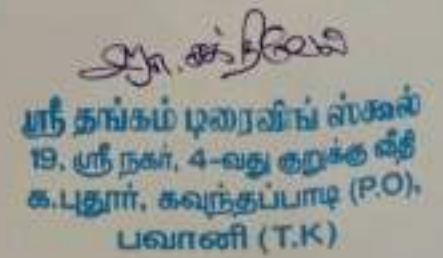 ஆர். சக்திவேல்
ஸ்ரீ தங்கம் டிரைவிங் ஸ்கூல்
19, ஸ்ரீ நகர், 4-வது குறுக்கு வீதி
க.புதூர், கவுந்தப்பாடி (P.O),
பவானி (T.K)